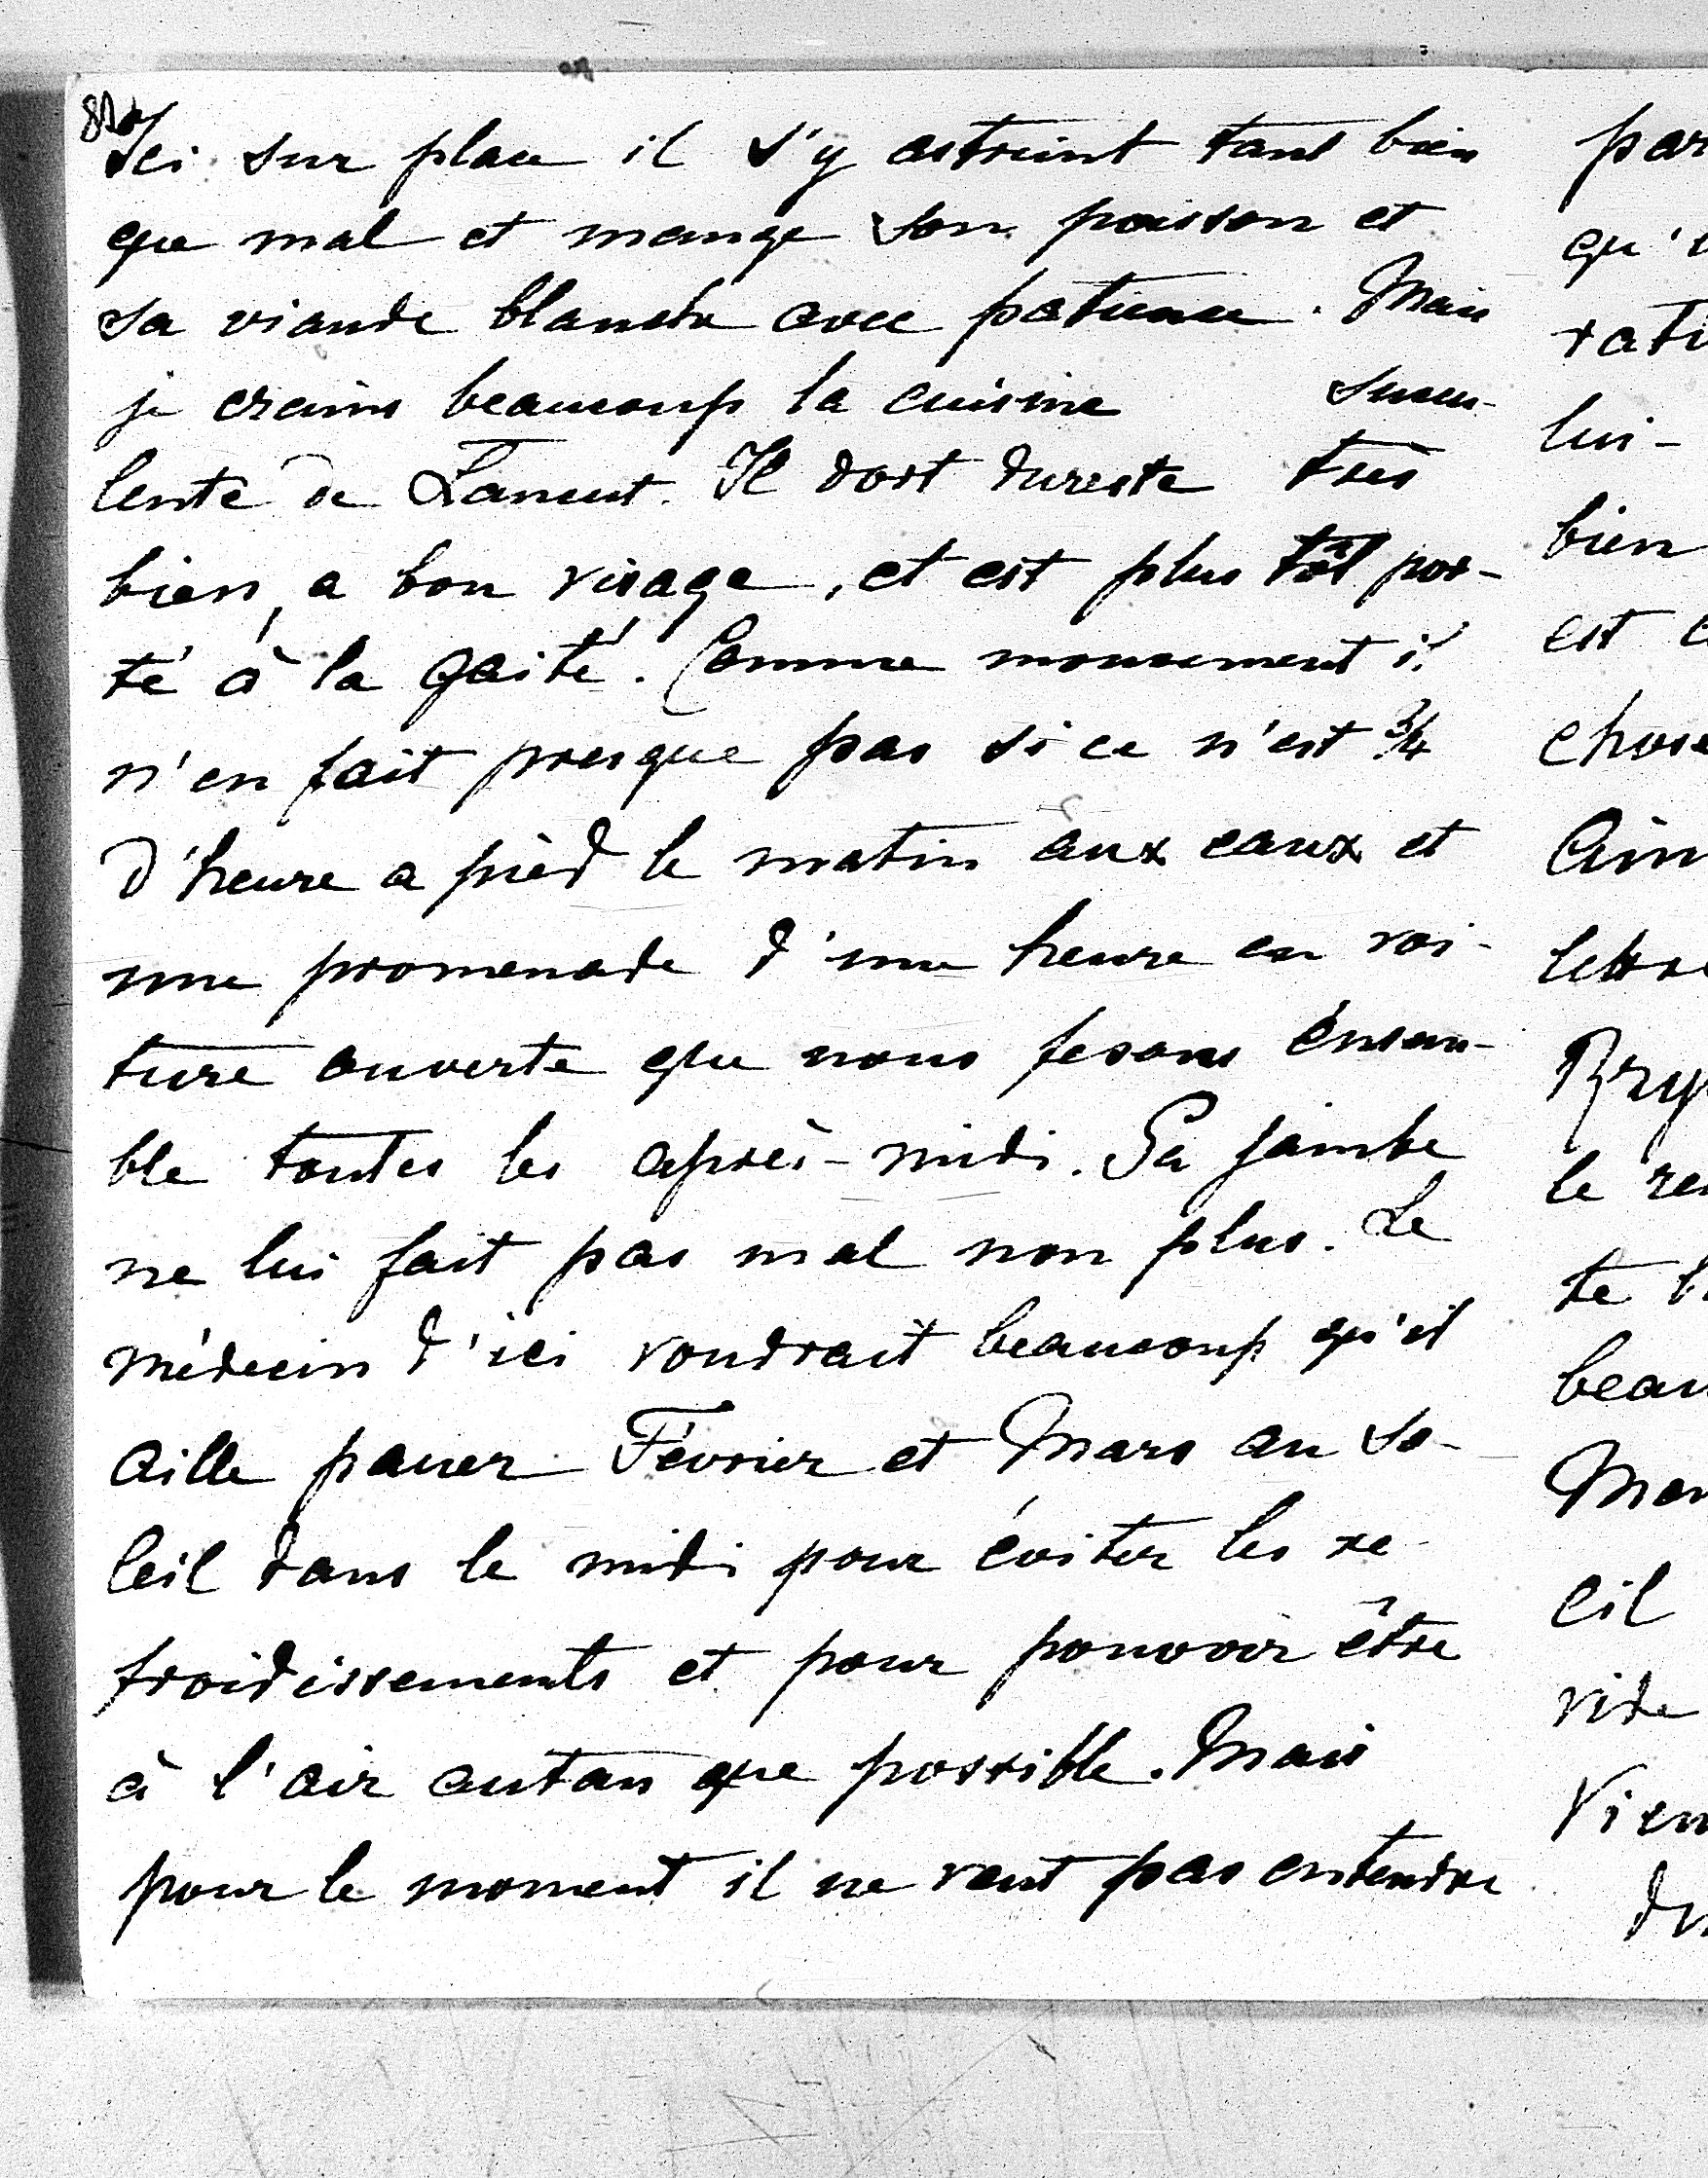 Ici sur place il s'y astreint tant bien
que mal et mange son poisson et
sa viande blanche avec patience. Mais
je crains beaucoup la cuisine succu-
lente de Lanent. Il dort dureste très
bien, a bon visage, et est plus tôt por-
té à la gaité. Comme mouvement il
n'en fait presque pas si ce n'est 3/4
d'heure a pied le matin aux eaux et
une promenade d'une heure en voi-
ture ouverte que nous fesons ensem-
ble toutes les après-midi. Sa jambe
ne lui fait pas mal non plus. Le
médecin d'ici voudrait beaucoup qu'il
aille passer Février et Mars au so-
leil dans le midi pour éviter les re-
froidissements et pour pouvoir être
à l'air autan que possible. Mais
pour le moment il ne veut pas entendre
par
qu'
rati
lui-
bien
est
chose
Ain
lettre
le
te
beau
eil
vite
Vien